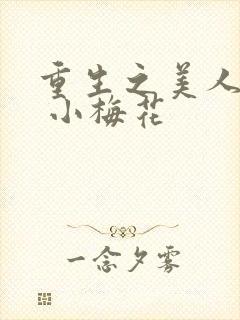 重生之美人
小梅花
一念夕雾